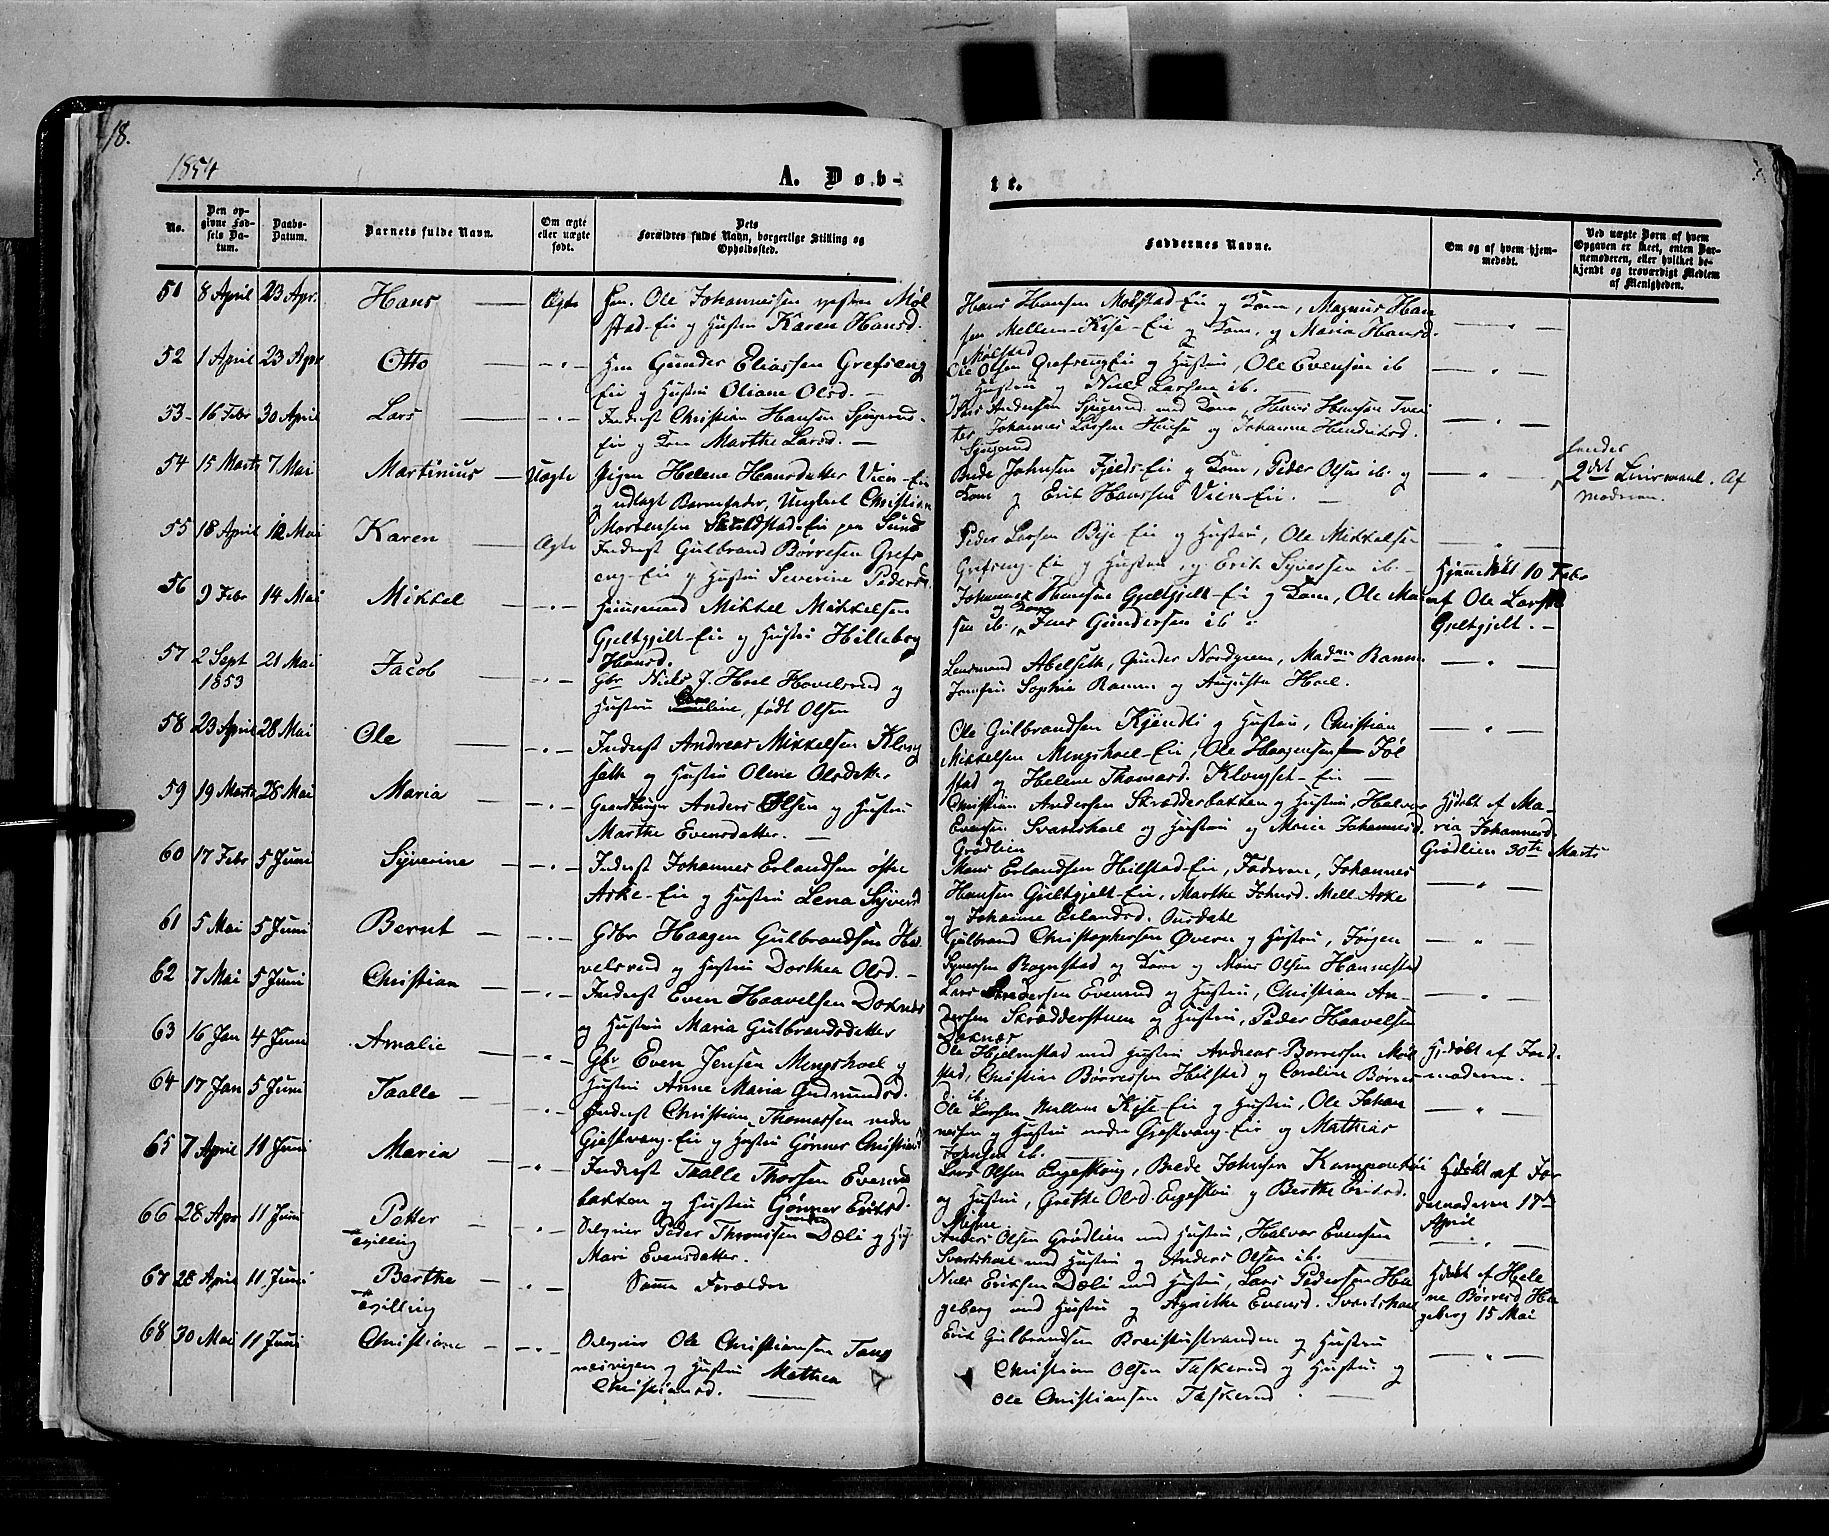 18.
1854
A. Døb-
te.
No.
Den op-
givne Fød-
sels Da-
tum.
Daabs-
Datum.
Barnets fulde Navn.
Om ægte
eller uægte
født.
Dets
Forældres fulde Navn, borgerlige Stilling og
Opholdssted.
Faddernes Navne.
Om og af hvem hjem-
medøbt.
Ved uægte Børn af hvem
Opgaven er skeet, enten Bar-
nemoderen, eller hvilket be-
kjendt og troværdigt Medlem
af Menigheden.
51 8 April 23 Apr. Hans Ægte Hm. Ole Johannessen Møl
stad-Eie og Hustru Karen Hansd.
Hans Hansen Mølstad-Eie og Kone, Magnus Han
sen Mellem-Kise-Eie og Kone, og Maria Hansd.
Mølstad
52 1 April 23 Apr Otto Hm Gunder Eliassen Grefseng
Eie og Hustru Oliane Olsd.
Ole Olsen Grefseng-Eie og Hustru, Ole Evensen ib
og Hustru og Niels Larsen ib.
53 16 Febr 30 April Lars Inderst Christian Hansen Sjugerud
Eie og Kone Marthe Larsd.
Andersen Sjugerud med Kone, Hans Hansen Tvei
ter Johannes Larsen og Johanne Hendriksd.
Sjugerud
54 15 Marts 7 Mai Martinius Uægte Pigen Helene Hansdatter Vien-Eie
og udlagt Barnefader, Ungkarl Christian
Mortensen
Brede Johnsen Fjelds-Eie og Kone, Peder Olsen ib. og
Kone og Erik Hanssen Vien-Eie.
Hendes
2det Leiermaal. Af
Moderen.
55 18 April 12 Mai Karen Ægte Inderst Gulbrand Børresen Grefs
eng-Eie og Hustru Severine Pedersd.
Peder Larsen Bye Eie og Hustru, Ole Mikkelse
Grefseng-Eie og Hustru, og Erik Syversen ib.
56 9 Febr 14 Mai Mikkel Huusmand Mikkel Mikkelsen
Gjeltgjelt-Eie og Hustru Hilleborg
Hansd.
Johannes Hansen Gjeltgjelt-Eie og Kone, Ole
sen ib. og Kone, Jens Gundersen ib.
Hjemmedøbt 10 Febr
af Ole Larsen
Gjeltgjelt.
57 2 Sept
1853 21 Mai Jacob Gbr Niels J. Hoel Hovelsrud og
Hustru født Olsen
Lensmand Abelseth, Gunder Nordgreen, Madm Ramm
Jomfru Sophie Ramm og Augusta Hoel.
58 23 April 28 Mai Ole Inderst Andreas Mikkelsen Klong
seth og Hustru Oline Olsdatter
Ole Gulbrandsen Kjendli og Hustru, Christian
Mikkelsen Mengshoel-Eie, Ole Haagensen Jøl
stad og Helene Thomasd. Klongset-Eie
59 19 Marts 28 Mai Maria Gaardbruger Anders Olsen og Hustru
Marthe Evensdatter.
Christian Andersen Skrædderbakken og Hustru, Halvor
Evensen Svartshoel og Hustru og Marie Johannesd.
Grødlien
Hjdøbt af Ma-
ria Johannesd.
Grødlien 30te Marts
60 17 Febr 5 Juni Syverine Inderst Johannes Erlandsen østre
Aske-Eie og Hustru Lena Syversd
Mons Erlandsen Hilstad-Eie, Faderen, Johannes
Hansen Gjeltgjelt-Eie, Marthe Johnsd. Mell-Aske
og Johanne Erlandsd.
61 5 Mai 5 Juni Bernt Gbr Haagen Gulbrandsen Ho
velsrud og Hustru Dorthea Olsd.
Gulbrand Christophersen Øvern og Hustru, Jørgen
Syversen Bagnstad og Kone og Mons Olsen Hannestad
62 7 Mai 5 Juni Christian Inderst Even Haavelsen Doknes
og Hustru Maria Gulbrandsdatter
Lars Pedersen Evenrud og Hustru, Christian An-
dersen Skrædderstuen og Hustru, Peder Haavelsen
Doknes
63 16 Jan 4 Juni Amalie Gbr Even Jensen Mengshoel og
Hustru Anne Maria Gudmundsd.
Ole Hjelmstad med Hustru Andreas Borresen Møl
stad, Christian Børresen Hilstad og Caroline Børres
d. ib.
Hjdøbt af Jord-
moderen.
64 17 Jan 5 Juni Taalle Inderst Christian Thomassen nedre
Gjestvang-Eie og Hustru Gønner Christiansd
Ole Larsen Mellem Kise-Eie og Hustru, Ole Johan
nessen og Hustru nedre Gjestvang-Eie og Mathias
Johnsen ib.
65 7 April 11 Juni Maria Inderst Taalle Thorsen Evenrud
bakken og Hustru Gønner Eriksd.
Lars Olsen Engeskoug, Brede Johnsen
og Hustru, Grethe Olsd. Engeskou og Berthe Eriksd.
Hjdøbt af Jor
demoderen 17de
April
66 28 Apr 11 Juni Petter
Tvilling
Selveier Peder Thronssen Dæli og Hus.
Mari Evensdatter.
Anders Olsen Grødlien med Hustru, Halvor Evensen
Svartshoel med Hustru og Anders Olsen ib.
67 28 April 11 Juni Berthe
Tvilling
Samme Forældre
Niels Eriksen Dæli med Hustru, Lars Pedersen He
geberg med Hustru og Agnethe Evensd. Svartshoel
Hjdøbt af Hele
ne Børresd He
geberg 15 Mai
68 30 Mai 11 Juni Christiane Selveier Ole Christiansen Tang
neivigen og Hustru Mathea
Christiansd.
Erik Gulbrandsen Breiskustranden og Hustru
Christian Olsen Taskerud og Hustru og
Ole Christiansen Taskerud